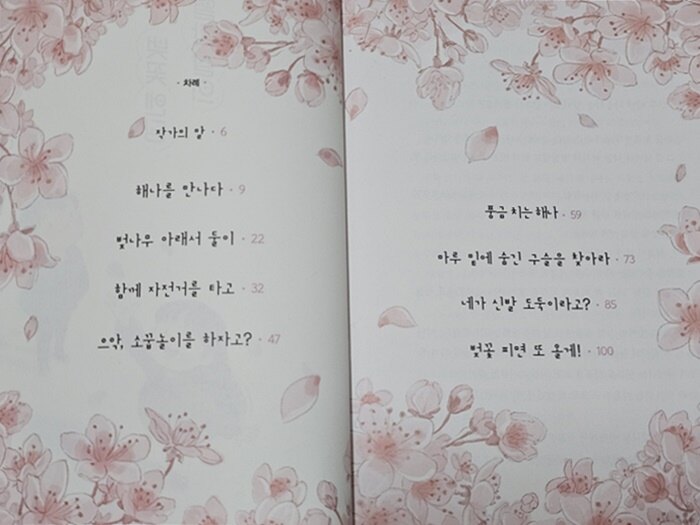 · 차례 ·
작가의 말 · 6
해나를 만나다 · 9
벚나무 아래서 둘이 · 22
함께 자전거를 타고 · 32
으악, 소꿉놀이를 하자고? · 47
풍금 치는 해나 · 59
마루 밑에 숨긴 구슬을 찾아라 · 73
네가 신발 도둑이라고? · 85
벚꽃 피면 또 올게! · 100